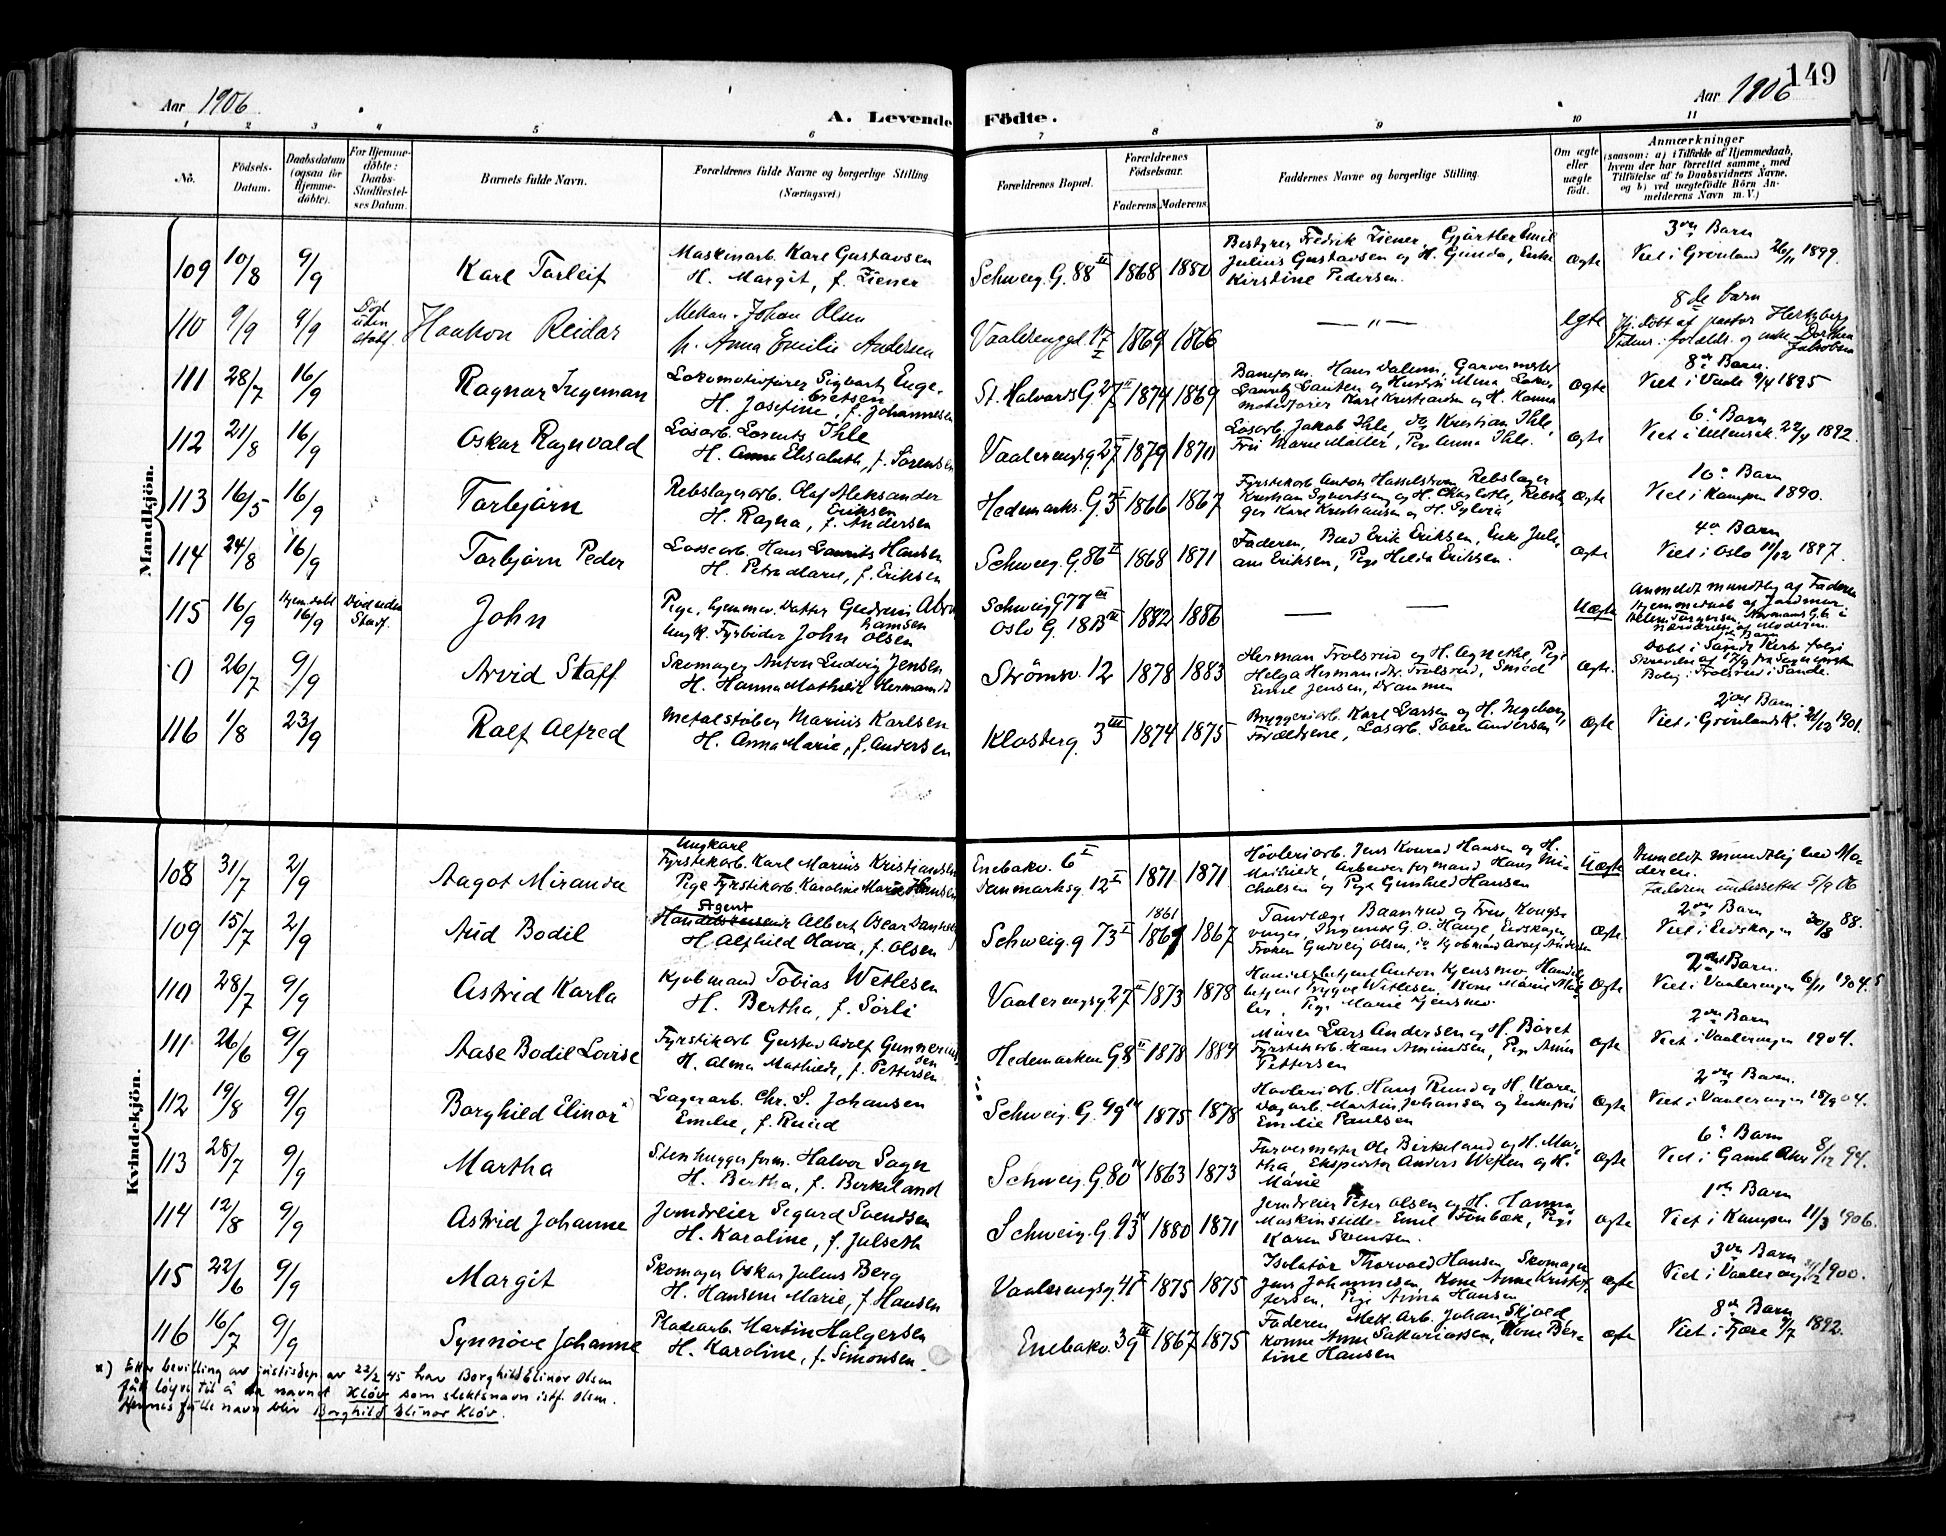 149
Aar 1906
A. Levende Födte.
Aar 1906
1 2 3 4 5 6 7 8 9 10 11
No.
Födsels-Datum.
Daabsdatum (ogsaa for Hjemme-döbte).
For Hjemme-döbte: Daabs-Stadfæstel-ses Datum.
Barnets fulde Navn.
Forældrenes fulde Navne og borgerlige Stilling
(Næringsvei)
Forældrenes Bopæl.
Forældrenes Födselsaar.
Faderens Moderens
Faddernes Navne og borgerlige Stilling.
Om ægte eller uægte födt.
Anmærkninger
(saasom: a) i Tilfælde af Hjemmedaab, hvem der har forrettet samme, med Tilföielse af to Daabsvidners Navne, og b) ved uægtefödte Börn An-melderens Navn m. V.)
Mandkjön.
109 10/8 9/9 Karl Torleif
Maskinarb. Karl Gustavsen
H. Margit, f. Ziener
Schweig. G. 88 II 1868 1880
Bestyrer Fredrik Ziener, Gjörtler Emil
Julius Gustavsen og H. Gunda, Enke
Kirstine Pedersen.
Ægte
3die Barn
Viet i Grönland 26/11 1899.
110 9/9 9/9 Död uden stadf. Haakon Reidar
Mekan. Johan Olsen
h. Anna Emilie Andersen
Vaalerenggt. 17 I 1869 1866
— „ —
Ægte
8de barn
Hj. döbt af pastor Hertzberg
111 28/7 16/9 Ragnar Ingeman
Lokomotivförer Sigvart Enge-
bretsen
H. Josefine, f. Johannesen
St. Halvards G. 27 II 1874 1869
Ægte
8de Barn.
Viet i Vaale 9/4 1895
112 21/8 16/9 Oskar Ragnvald
Lösarb. Lorents Ihle
H. Anna Elisabeth, f. Sörensen
Vaalerengsg. 27 1879 1870
Lösarb. Jakob Ihle, do Kristian Ihle,
Fru Marie Möller, Pige Anna Ihle.
Ægte
6te Barn
Viet i Ullensak. 22/4 1892.
113 16/5 16/9 Torbjörn
Rebslagerarb. Olaf Aleksander
Eriksen
H. Ragna, f. Andersen
Hedemarks. G. 3 I 1866 1867
Fyrstikarb Anton Hasselström, Rebslager
Kristian Syvertsen og H. Charlotte, Rebsla-
ger Karl Kristiansen og H. Sylvia
Ægte
10de Barn
Viet i Kampen 1890.
114 24/8 16/9 Torbjörn Peder
Lossearb. Hans Laurits Hansen
H. Petra Marie, f. Eriksen
Schweig. G. 86 II 1868 1871
Faderen, Bud Erik Eriksen, Enke Juli-
ane Eriksen, Pige Hilda Eriksen.
Ægte
4de Barn
Viet i Oslo 11/12 1897.
115 16/9 Hjem.döbt 16/9 Död uden Stadf. John
Pige, hjemmev. Datter Gudrun Abra-
hamsen
Ungk. Fyrböder John Olsen
Schweig G 77 III
Oslo G. 18 B III 1882 1886
— —
Uægte
Anmeldt mundtlig af Faderen
Hjemmedaab af Jordmor
0 26/7 9/9 Arvid Staff
Skomager Anton Ludvig Jensen
H. Hanna Mathilde Hermansd.
Strömsv. 12 1878 1883
Herman Trolsrud og H. Agnethe, Pige
Helga Hermansdtr. Trolsrud, Smed
Emil Jensen, Drammen
Ægte.
Döbt i Sande Kirke
Bolig: Trolsrud i Sande.
116 1/8 23/9 Ralf Alfred
Metalstöber Marius Karlsen
H. Anna Marie, f. Andersen
Klosterg. 3 III 1874 1875
Bryggeriarb. Karl Larsen og H. Ingeborg,
Forældrene, Lösarb. Sören Andersen
Ægte
2det Barn.
Viet i Grönlands K. 21/12 1901.
Kvindekjön.
108 31/7 2/9 Aagot Miranda
Ungkarl
Fyrstikarb. Karl Marius Kristiansen
Pige Fyrstikarb. Karoline Marie Hansen
Enebakv. 6 I
Danmarksg 12 I 1871 1871
Hövleriarb. Jens Konrad Hansen og H.
Mathilde, Arbeiderformand Hans Mi-
chalsen og Pige Gunhild Hansen
Uægte
Anmeldt mundtlig ved Mo-
deren.
Faderen underrettet 5/9 06
109 15/7 2/9 Aud Bodil
Agent
Albert Oscar
H. Alfhild Olava, f. Olsen
Schweig. g 73 I 1861 1867
Tandlæge Baanrud og Fru, Kongs-
vinger, G. O. Hauge, Eidskogen,
Fröken Gudveig Olsen, do Kjöbmand Adolf Andersen
Ægte.
2det Barn
Viet i Eidskogen 30/8 88.
110 28/7 9/9 Astrid Karla
Kjöbmand Tobias Wetlesen
H. Bertha, f. Sörli
Vaalerengsg. 27 I 1873 1878
Handelsbetjent Anton Kjensmo, Handels-
betjent Trygve Wetlesen, Kone Marie Möl-
ler, Pige Marie Kjensmo.
Ægte
2det Barn.
Viet i Vaalerengen 6/11 1904.
111 26/6 9/9 Aase Bodil Lovise
Fyrstikarb Gustav Adolf Gunnerius-
sen
H. Alma Mathilde, f. Pettersen
Hedemarken G. 8 II 1878 1884
Murer Lars Andersen og H. Böret
Fyrstikarb. Hans Amundsen, Pige Anna
Pettersen
Ægte
2det Barn
Viet i Vaalerengen 1904.
112 19/8 9/9 Borghild Elinor x)
Lagerarb. Chr. S. Johansen
Emilie, f. Rund
Schweig. G. 99 IV 1875 1878
Hövleriarb. Hans Rund og H. Karen
Dagarb. Martin Johansen og Enkefru
Emilie Paulsen
Ægte
2det Barn.
Viet i Vaalerengen 18/9 04.
113 28/7 9/9 Martha
Stenhuggerform. Halvor Sagen
H. Bertha, f. Birkeland
Schweig. G. 80 IV 1863 1873
Farvermester Ole Birkeland og H. Mar-
tha, Ekspeditör Anders Wetlen og H.
Marie
Ægte
6te Barn
Viet i Gamle Aker 8/12 94.
114 12/8 9/9 Astrid Johanne
Jerndreier Sigurd Svendsen
H. Karoline, f. Julseth
Schweig. G. 93 IV 1880 1871
Jerndreier Peter Olsen og H. Hanna,
Maskinstider Emil Tönbæk, Pige
Karen Svendsen.
Ægte
1ste Barn
Viet i Kampen 11/3 1906.
115 22/6 9/9 Margit
Skomager Oskar Julius Berg
H. Hansine Marie, f. Hansen
Vaalerengsg. 41 I 1875 1875
Isolatör Thorvald Hansen, Skomager
Jens Johannesen, Kone Anne Kristof-
fersen, Pige Anna Hansen
Ægte
3die Barn
Viet i Vaalereng 1900.
116 16/7 9/9 Synnöve Johanne
Pladearb. Martin Holgersen
H. Karoline, f. Simonsen
Enebakv. 39 III 1867 1875
Faderen, Mek. Arb. Johan Skjold
Konne Anne Sakariassen, Kone Ber-
tine Hansen
Ægte
8de Barn
Viet i Fjære 9/7 1892.
x) Etter bevilling av justisdep. av 22/2 45 har Borghild Elinor Olsen
fått löyve til å ta navnet Klöv som slektsnavn istf. Olsen.
Hennes fulle navn blir Borghild Elinor Klöv.